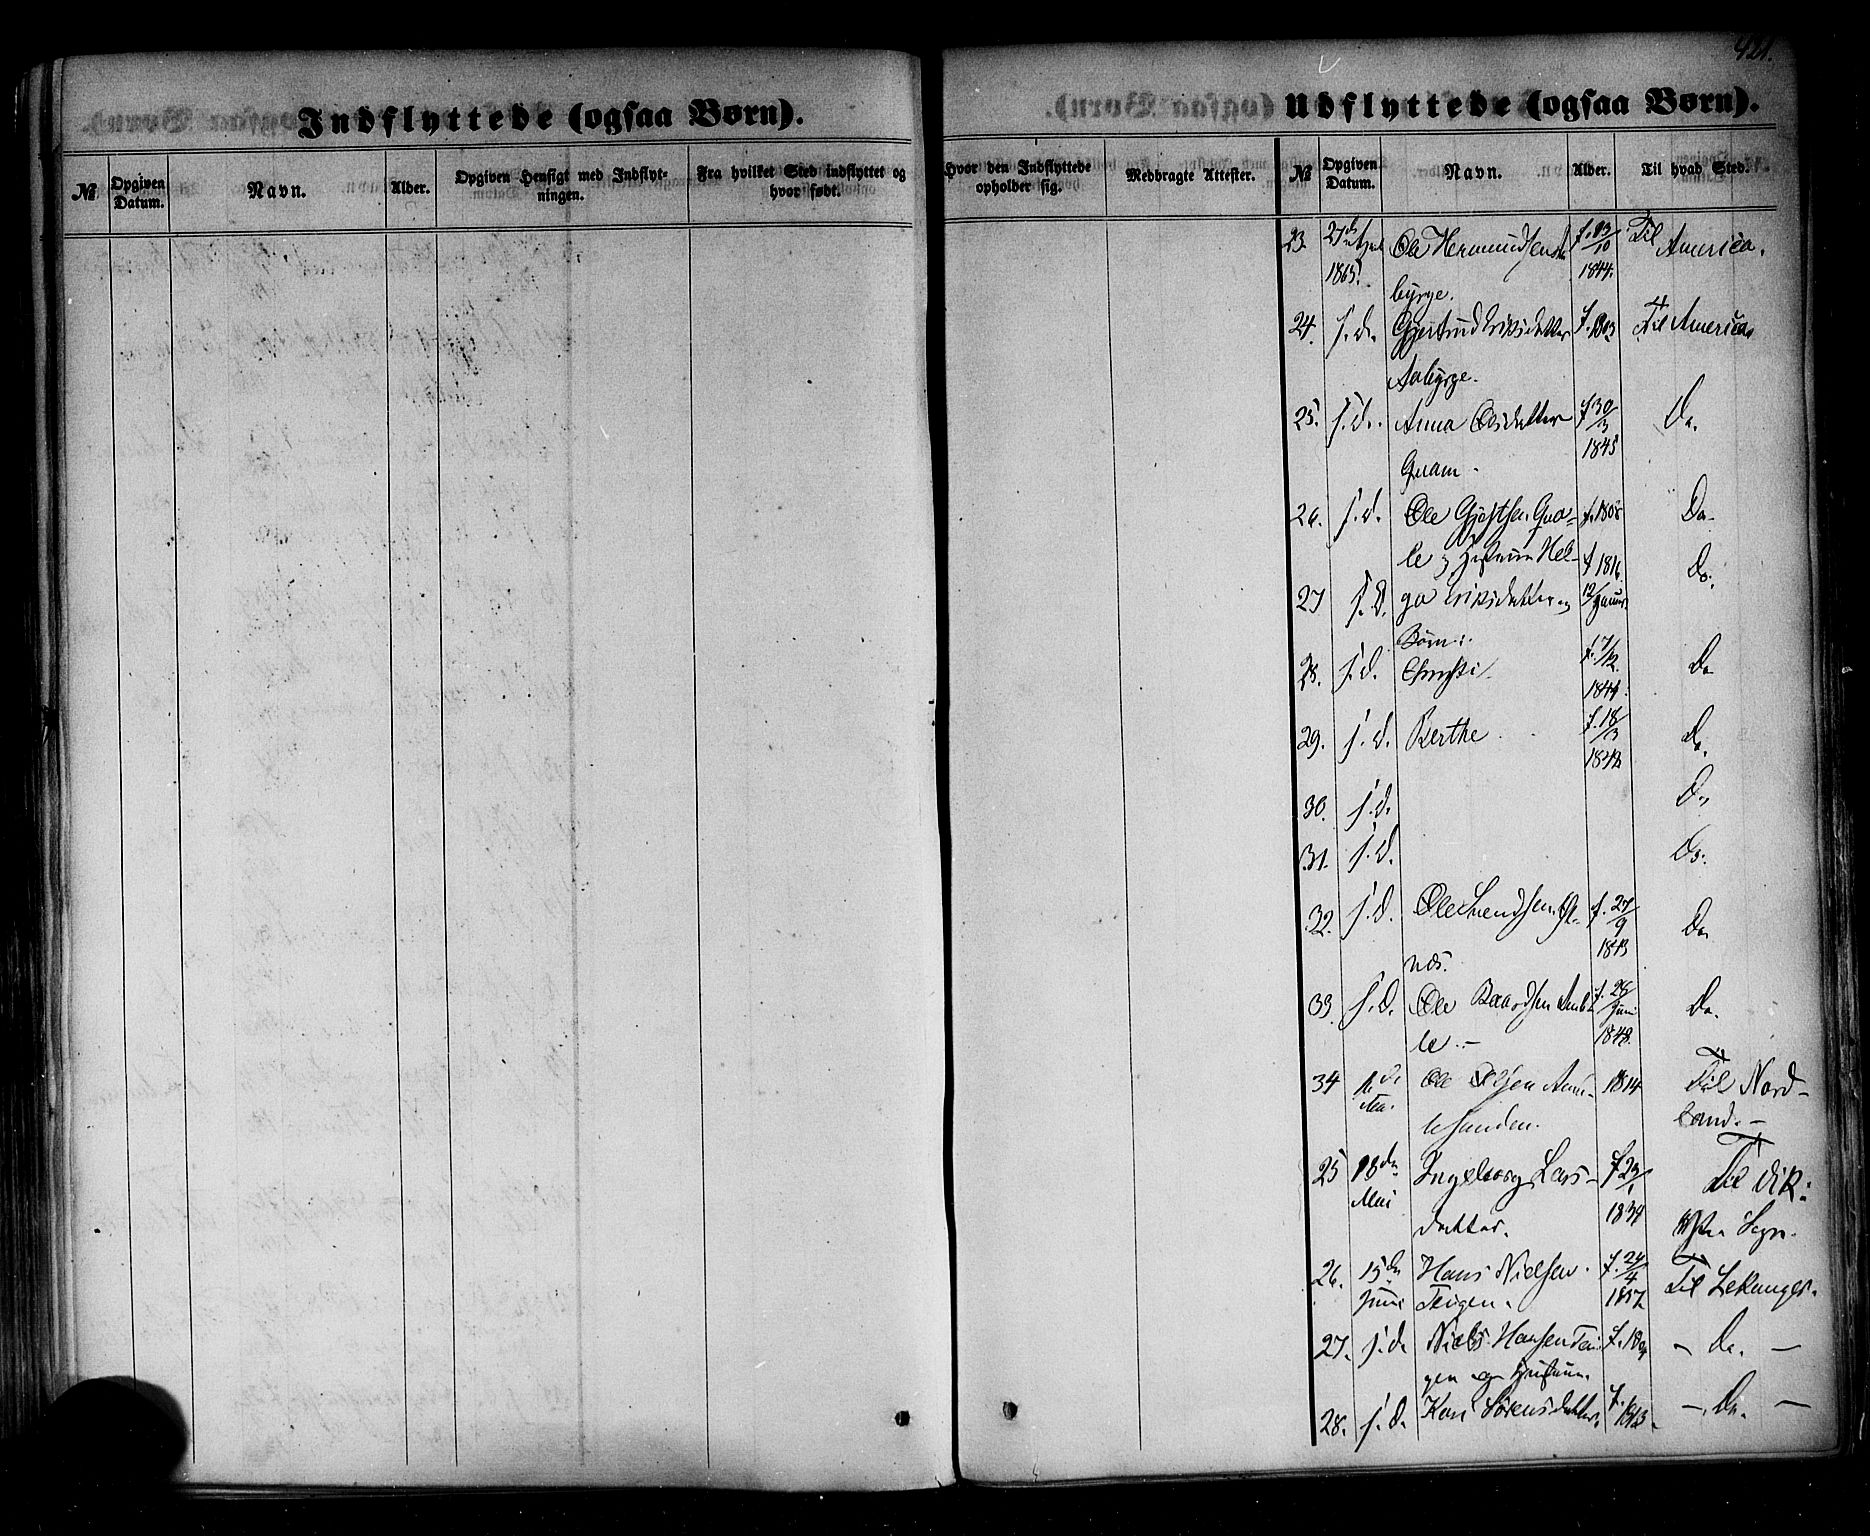 421.
Indflyttede (ogsaa Børn).
Udflyttede (ogsaa Børn).
№ Opgiven Datum. Navn. Alder. Opgiven Hensigt med Indflytningen. Fra hvilket Sted indflyttet og hvor født.
Hvor den Indflyttede opholder sig. Medbragte Attester. № Opgiven Datum. Navn. Alder. Til hvad Sted.
23. 27de April Ole Hermundsen f. 13/10 Til America.
1865. byrge. 1844.
24. s. d. Gjertrud Eriksdatter f. 1803 Til America
Aabyrge.
25. s. d. Anna Olsdatter f 30/3 Do.
Quam. 1845
26. s. d. Ole Gjestsen Qva- f. 1808 Do.
le og Hustru Hel- f 1816 Do.
27 s. d. ga Eriksdatter og 12/ Januar
Børn:
28. s. d. Christi f. 7/12 Do
1844.
29. s. d. Berthe f. 18/3 Do.
30. s. d. Do,
31. s. d. Do.
32. s. d. Ole Svendsen f. 27/9 Do
næs. 1843
33 s. d. Ole Baardsen f. 26/ Juni Do.
le. 1848.
34 Ole Olsen 1814 Til Nord-
land.
25 18de Ingeborg Lars- f 23/1 Til Vik:
Mai datter. 1834 Sogn.
26. 15de Hans Nielsen f. 24/4 Til Lekanger.
Juni Teigen. 1857
27. s. d. Niels Hansen Tei- Do.
gen og Hustru
28. s. d. Kari Sørensdatter f. 1813 Do.